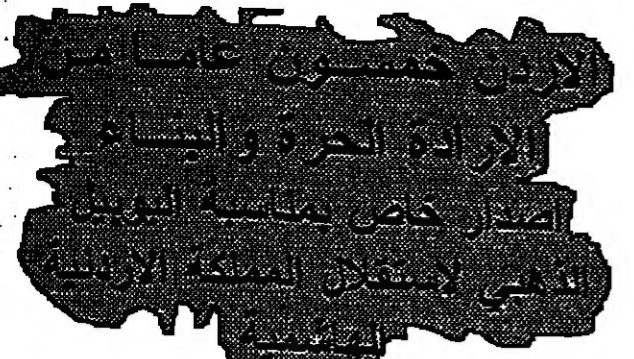 الاردن خمسون عاما من
الارادة الحرة والبناء
اصدار خاص بمناسبة اليوبيل
الذهبي لاستقلال المملكة الاردنية
الهاشمية